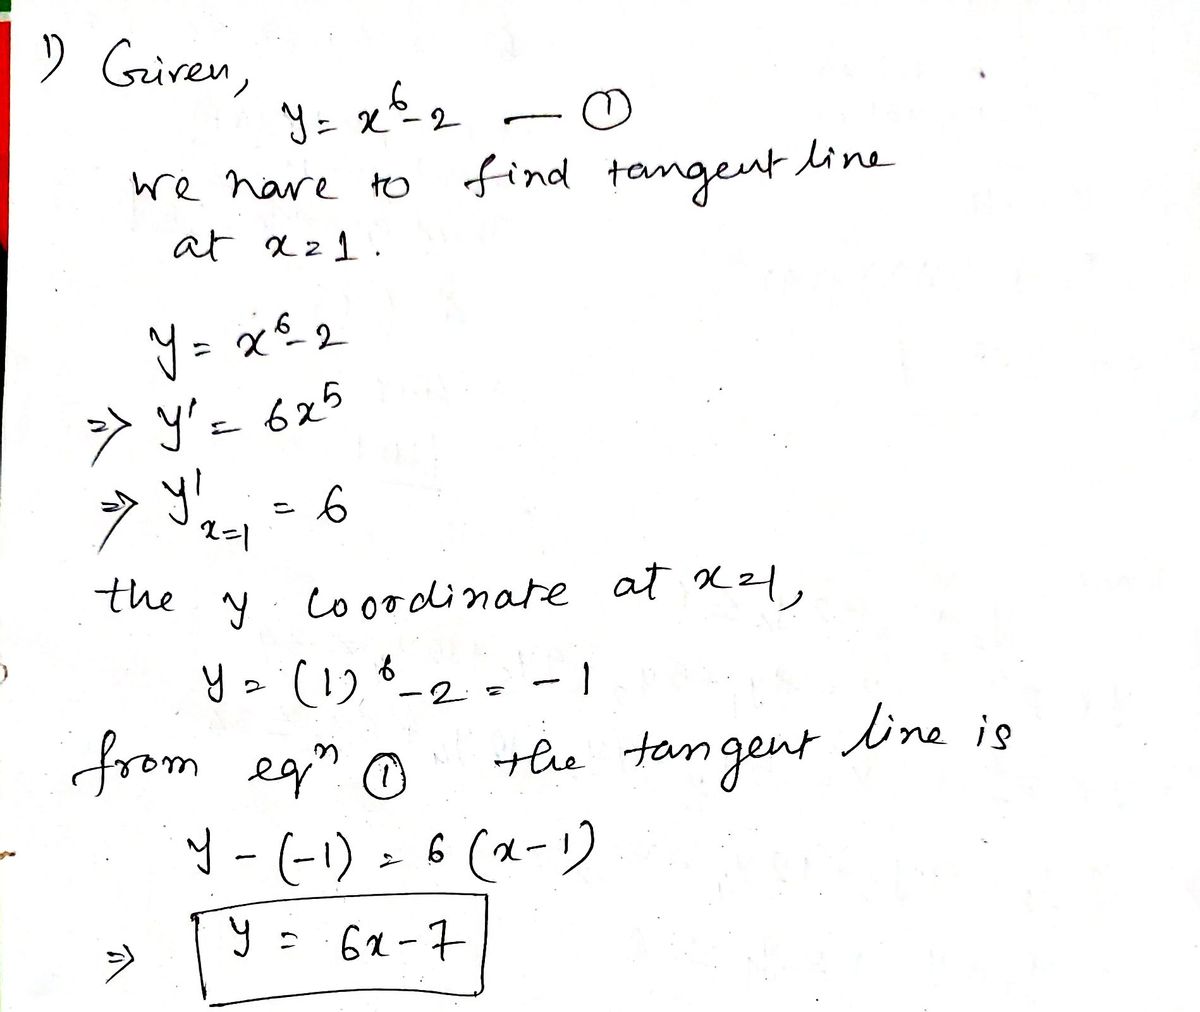 1) Given,
y = x⁶-2 — ①
we have to find tangent line
at x=1.
y = x⁶-2
=> y' = 6x⁵
=> y'ₓ₌₁ = 6
the y coordinate at x=1,
y = (1)⁶-2 = -1
from eqⁿ ① the tangent line is
y - (-1) = 6 (x-1)
=> y = 6x-7